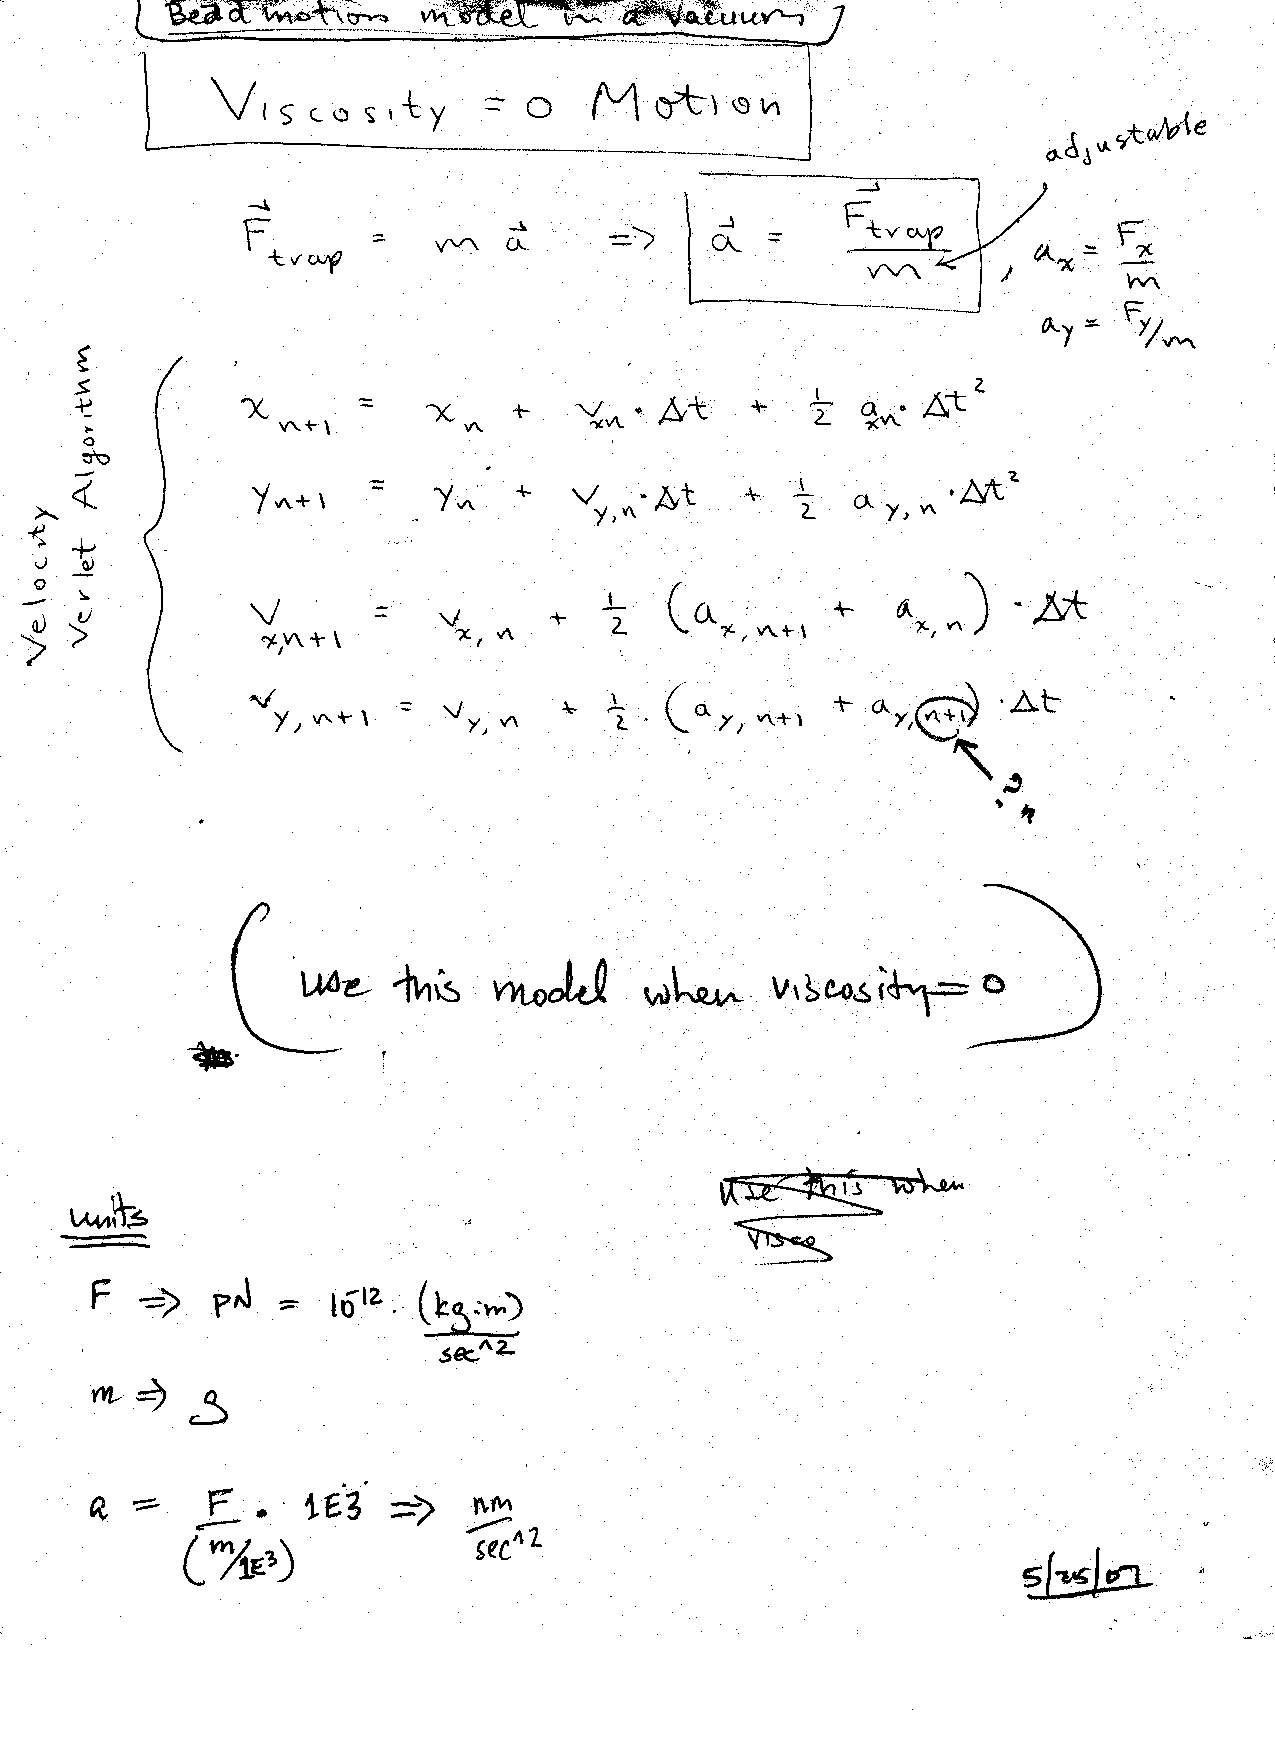 Bead motion model in a vacuum
Viscosity = 0 Motion
adjustable
F⃗trap = m a⃗ => a⃗ = F⃗trap / m , ax = Fx / m
ay = Fy/m
Velocity
Verlet Algorithm
x n+1 = x n + v xn · Δt + 1/2 a xn · Δt²
y n+1 = y n + v y,n · Δt + 1/2 a y,n · Δt²
v x,n+1 = v x,n + 1/2 (a x,n+1 + a x,n) · Δt
v y,n+1 = v y,n + 1/2 · (a y,n+1 + a y,n+1) · Δt
? n
(use this model when viscosity = 0)
use this when
visco
units
F => pN = 10^-12 · (kg·m) / sec^2
m => g
a = F / (m/1E3) · 1E3 => nm / sec^2
5/25/07